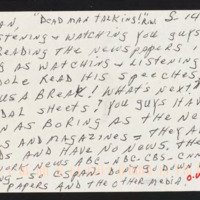 AN, "DEAD MAN TALKING!" S- 14
STENING & WATCHING YOU GUYS
READING THE NEWSPAPERS I
G AS WATCHING & LISTENING
OLE READ HIS SPEECHES
US A BREAK! WHAT'S NEXT,
DAL SHEETS? YOU GUYS HAV
N AS BORING AS THE NEW
S AND MAGAZINES = THEY A
DS AND HAVE NO NEWS, THE
WORK NEWS ABC-NBC-CBS-CNN
NG - SO C-SPAN - DON'T GO DOWN
PAPERS AND THE OTHER MEDIA.